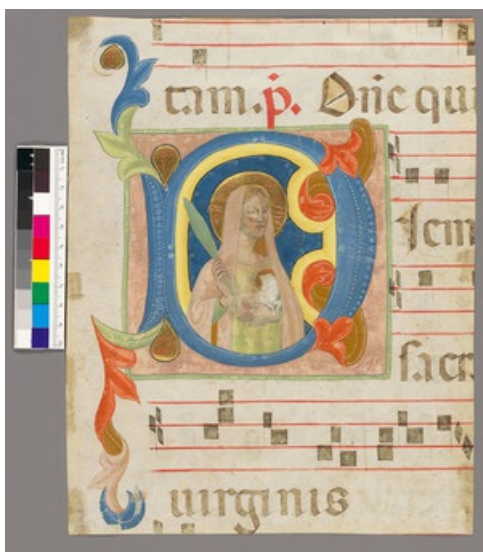 tam. p. Dñe qui
Jem
sacr
uirginis